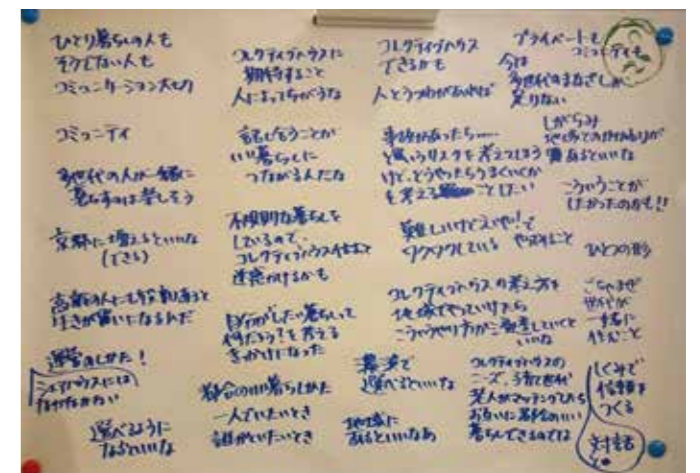 ひとり暮らしの人も
そうでない人も
コミュニケーション大切
コミュニティ
多世代の人が一緒に
暮らすのは楽しそう
京都に増えるといいな
(できる)
高齢の人にも役割あると
生きが習いになるんだ
運営のしかた!
シェアハウスには
なかなかない
選べるように
なるといいな
コレクティブハウスに
期待すること
人によってちがうな
話し合うことが
いい暮らしに
つながるんだな
不規則な暮らしを
しているので、
コレクティブハウス
迷惑かけるかも
自分がしたい暮らしって
何だろう?を考える
きっかけになった
都合のいい暮らしかた
一人でいたいとき
誰かといたいとき
コレクティブハウス
できるかも
人とうつわがあれば
事故があったら……
と思いリスクを考えてしまう
けど、どうやったらうまくいくか
を考えることしたい
難しいけどええや!で
ワクワクしている
コレクティブハウスの考え方を
地域でやっていけたら
こういうやり方が
いいな
選べるといいな
地域に
あるといいなあ
コレクティブハウスの
ニーズ、子育て世代
老人がマッチングしたら
お互いに都合のいい
暮らしできるのでは
プライベートも
コミュニティも
今は
多世代のまなざしが
足りない
しがらみ
地域での関わりが
あるといいな
こういうことが
したかったのかも!!
ひとつの形
ごちゃまぜ
世代が
一緒に
住むこと
しくみで
信頼を
つくる
対話